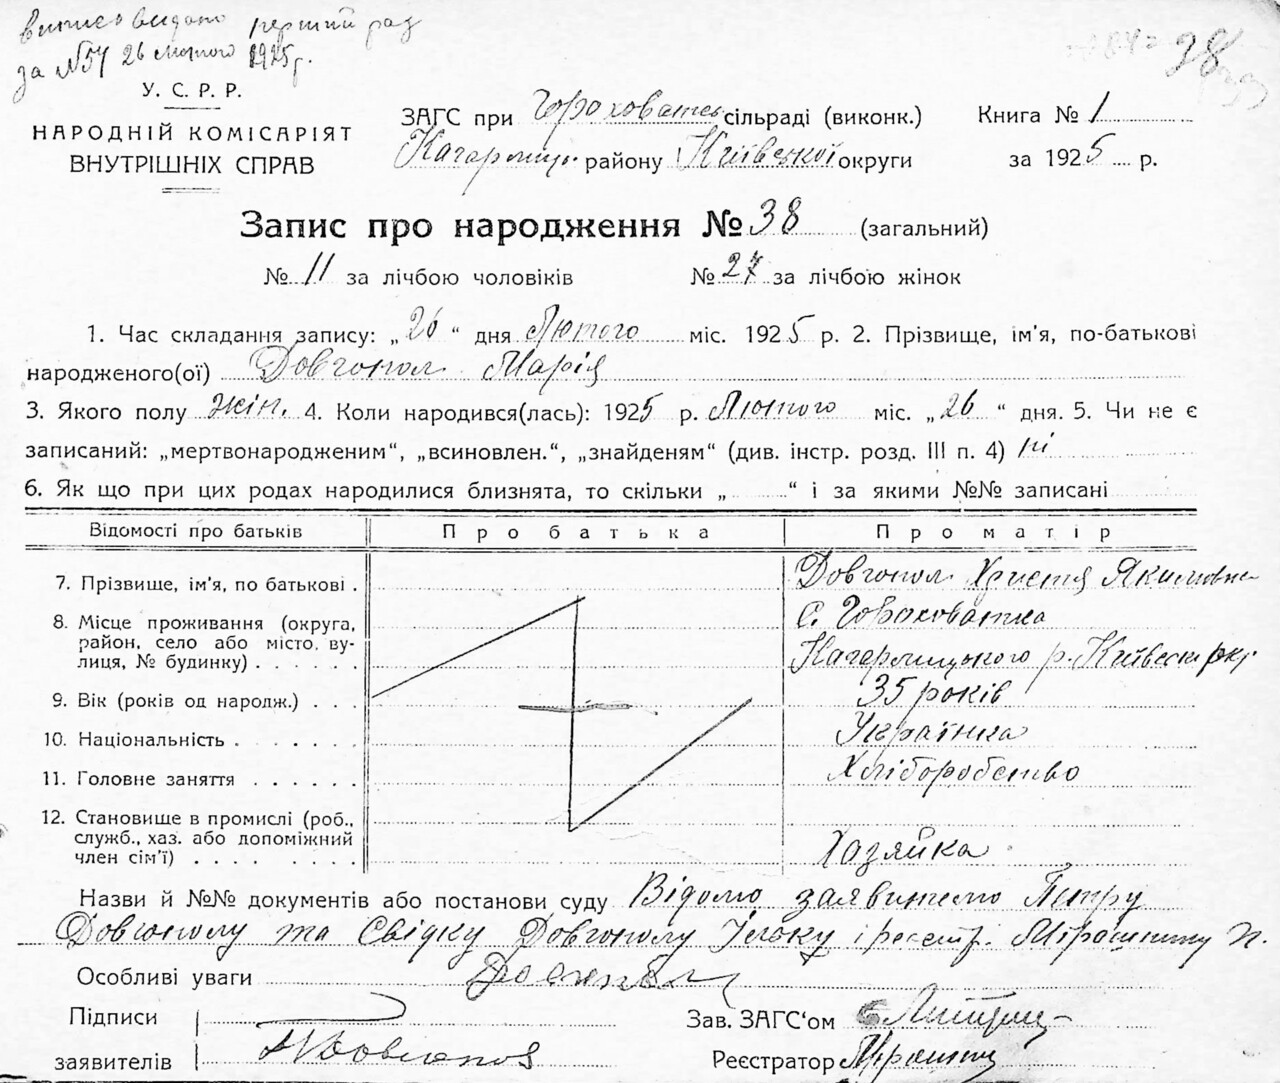 виписъ видано перший раз
за №54 26 лютого 1925 р.
38
У. С. Р. Р.
НАРОДНІЙ КОМІСАРІЯТ
ВНУТРІШНІХ СПРАВ
ЗАГС при Гороховатсь сільраді (виконк.)
Кагарлиць. району Київської округи
Книга № 1
за 1925 р.
Запис про народження № 38 (загальний)
№ 11 за лічбою чоловіків № 27 за лічбою жінок
1. Час складання запису: „26“ дня Лютого міс. 1925 р. 2. Прізвище, ім'я, по-батькові
народженого(ої) Довгопол Марія
3. Якого полу жін. 4. Коли народився(лась): 1925 р. Лютого міс. „26“ дня. 5. Чи не є
записаний: „мертвонародженим“, „всиновлен.“, „знайденям“ (див. інстр. розд. III п. 4) ні
6. Як що при цих родах народилися близнята, то скільки „ “ і за якими №№ записані
Відомості про батьків Про батька Про матір
7. Прізвище, ім'я, по батькові . Довгопол Христя Якимовна
8. Місце проживання (округа, район, село або місто, вулиця, № будинку) . . . . . с. Гороховатка
Кагарлицького р. Київськ. окр.
9. Вік (років од народж.) . . . 35 років
10. Національність . . . . . . . Українка
11. Головне заняття . . . . . . Хліборобство
12. Становище в промислі (роб., служб., хаз. або допоміжний член сім'ї) . . . . . . . . Хазяйка
Назви й №№ документів або постанови суду Відомо заявителю Петру
Довгополу та Свідку Довгополу Ільку і реєстр. Мірошнику
Особливі уваги
Підписи
заявителів
Зав. ЗАГС'ом
Реєстратор